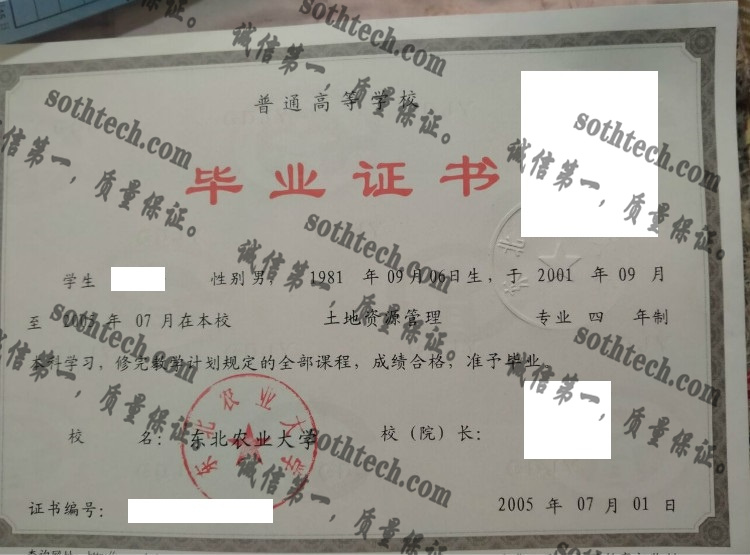 普通高等学校
毕业证书
学生 性别 男， 1981 年 09 月 06 日生，于 2001 年 09 月
至 2005 年 07 月在本校 土地资源管理 专业 四 年制
本科学习，修完教学计划规定的全部课程，成绩合格，准予毕业。
校 名： 东北农业大学 校（院）长：
东北农业大学
证书编号： 2005 年 07 月 01 日
sothtech.com
诚信第一，质量保证。
sothtech.com
诚信第一，质量保证。
sothtech.com
诚信第一，质量保证。
sothtech.com
诚信第一，质量保证。
sothtech.com
诚信第一，质量保证。
sothtech.com
诚信第一，质量保证。
sothtech.com
诚信第一，质量保证。